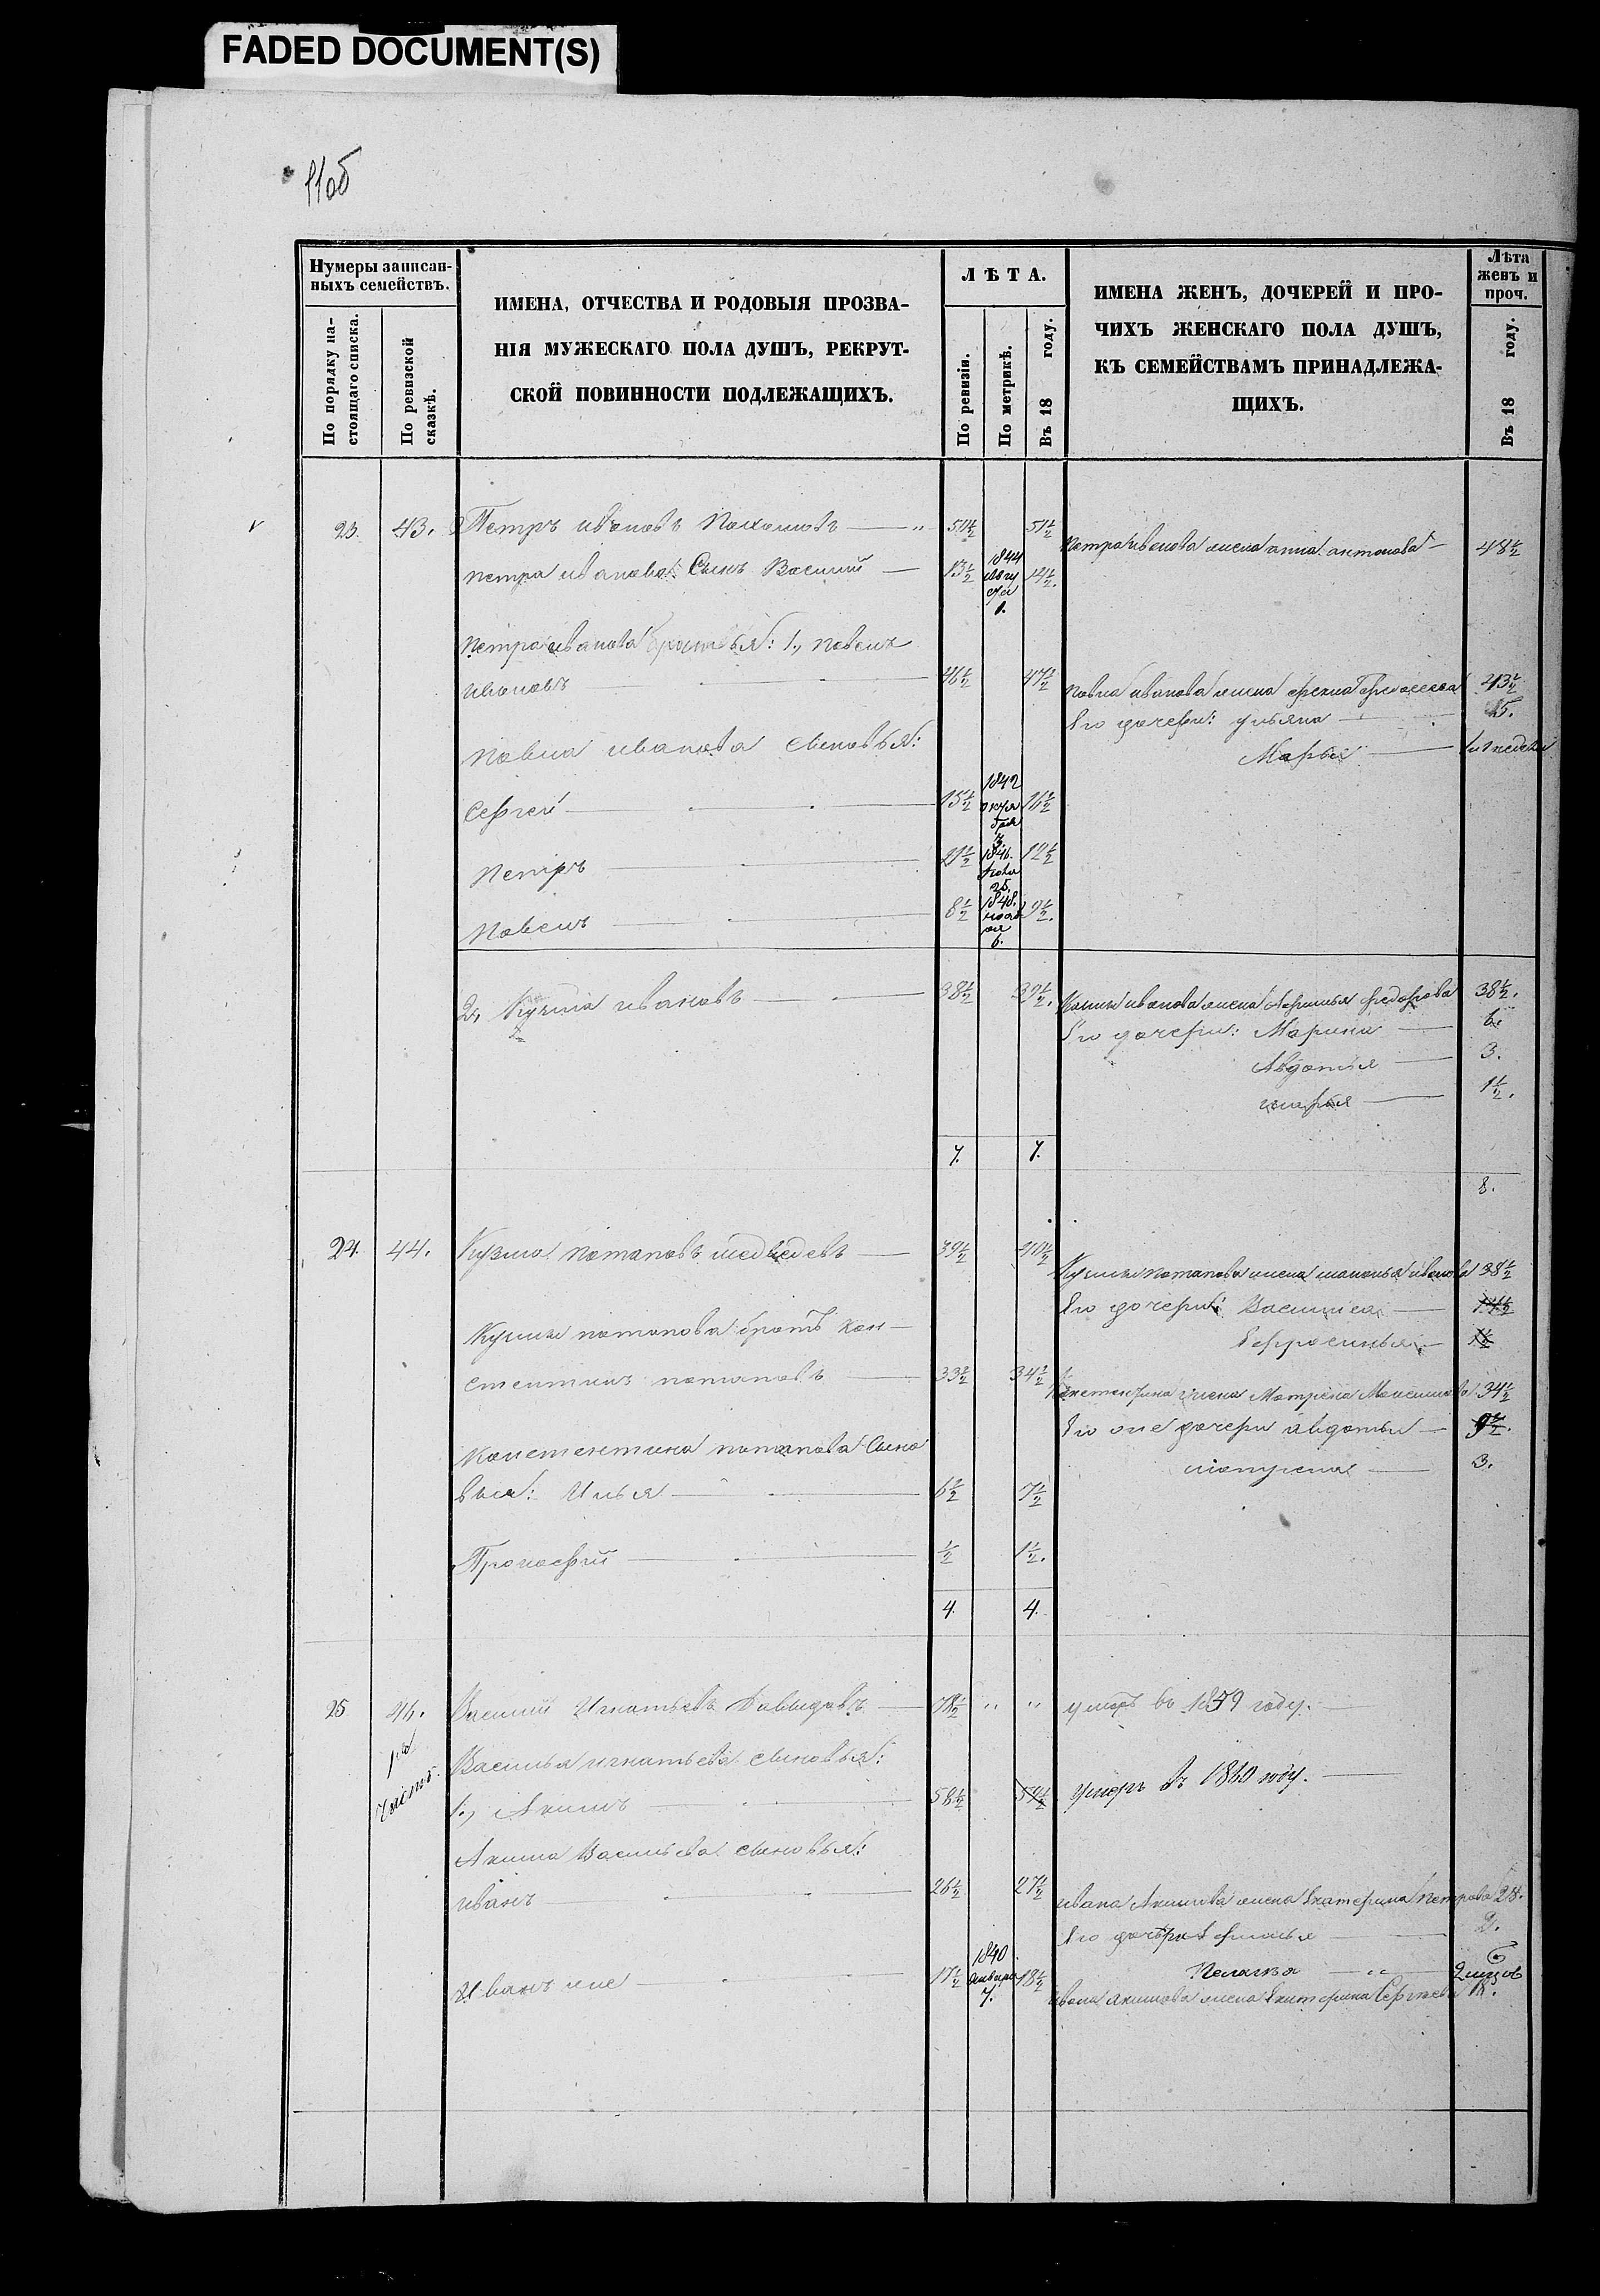 FADED DOCUMENT(S)
11об
Нумеры записан-
ныхъ семействъ.
По порядку на-
стоящаго списка.
По ревизской
сказкѣ.
ИМЕНА, ОТЧЕСТВА И РОДОВЫЯ ПРОЗВА-
НІЯ МУЖЕСКАГО ПОЛА ДУШЪ, РЕКРУТ-
СКОЙ ПОВИННОСТИ ПОДЛЕЖАЩИХЪ.
ЛѢТА.
По ревизіи.
По метрикѣ.
Въ 18 году.
ИМЕНА ЖЕНЪ, ДОЧЕРЕЙ И ПРО-
ЧИХЪ ЖЕНСКАГО ПОЛА ДУШЪ,
КЪ СЕМЕЙСТВАМЪ ПРИНАДЛЕЖА-
ЩИХЪ.
Лѣта
женъ и
проч.
Въ 18 году.
23. 43. Петръ ивановъ Пахомовъ — 50½ 51½
Петра иванова жена анна антонова — 48½
петра иванова Сынъ Василий — 13½ 1844 августа 1. 14½.
Петра иванова братья: 1., павелъ
ивановъ — 46½ 47½
Павла иванова жена — 43½
Его дочери: ульяна — 15.
Марья —
Павла иванова сыновья:
Сергей — 15½ 1842 октября 3 16½
Петръ — 1846. 25. 12½
Павелъ — 8½ 1848. 6. 9½.
2, Кузма ивановъ — 38½ 39½.
Кузмы иванова жена федорова 38½.
Его дочери: Марина — 6.
Авдотья — 3.
марья — 1½.
7. 7.
8.
24. 44. Кузма Потаповъ медведевъ — 39½ 40½
Кузмы потапова жена иванова 38½
Его дочери: Василиса —
Ефросинья —
Кузмы потапова братъ кон-
стентинъ потаповъ — 33½ 34½
Констентина жена Матрена Максимова 34½
Его же дочери авдотья — 9½.
— 3.
Констентина потапова Сыно
вья: Илья — 6½ 7½
Прокофий — ½ 1½.
4. 4.
25 46. Василий Игнатьевъ Давыдовъ — 78½ " " умеръ въ 1859 году. —
1я часть.
Василья игнатьева сыновья:
1., Акимъ — 58½ 59½ Умеръ въ 1860 году. —
Акима Васильева сыновья:
иванъ — 26½ 27½
ивана Акимова жена Екатерина Петрова 28.
Его дочери — 2.
Пелагея — "
Иванъ же — 17½ 1840 января 7. 18½
ивана акимова жена Екатерина Сергеева 18.